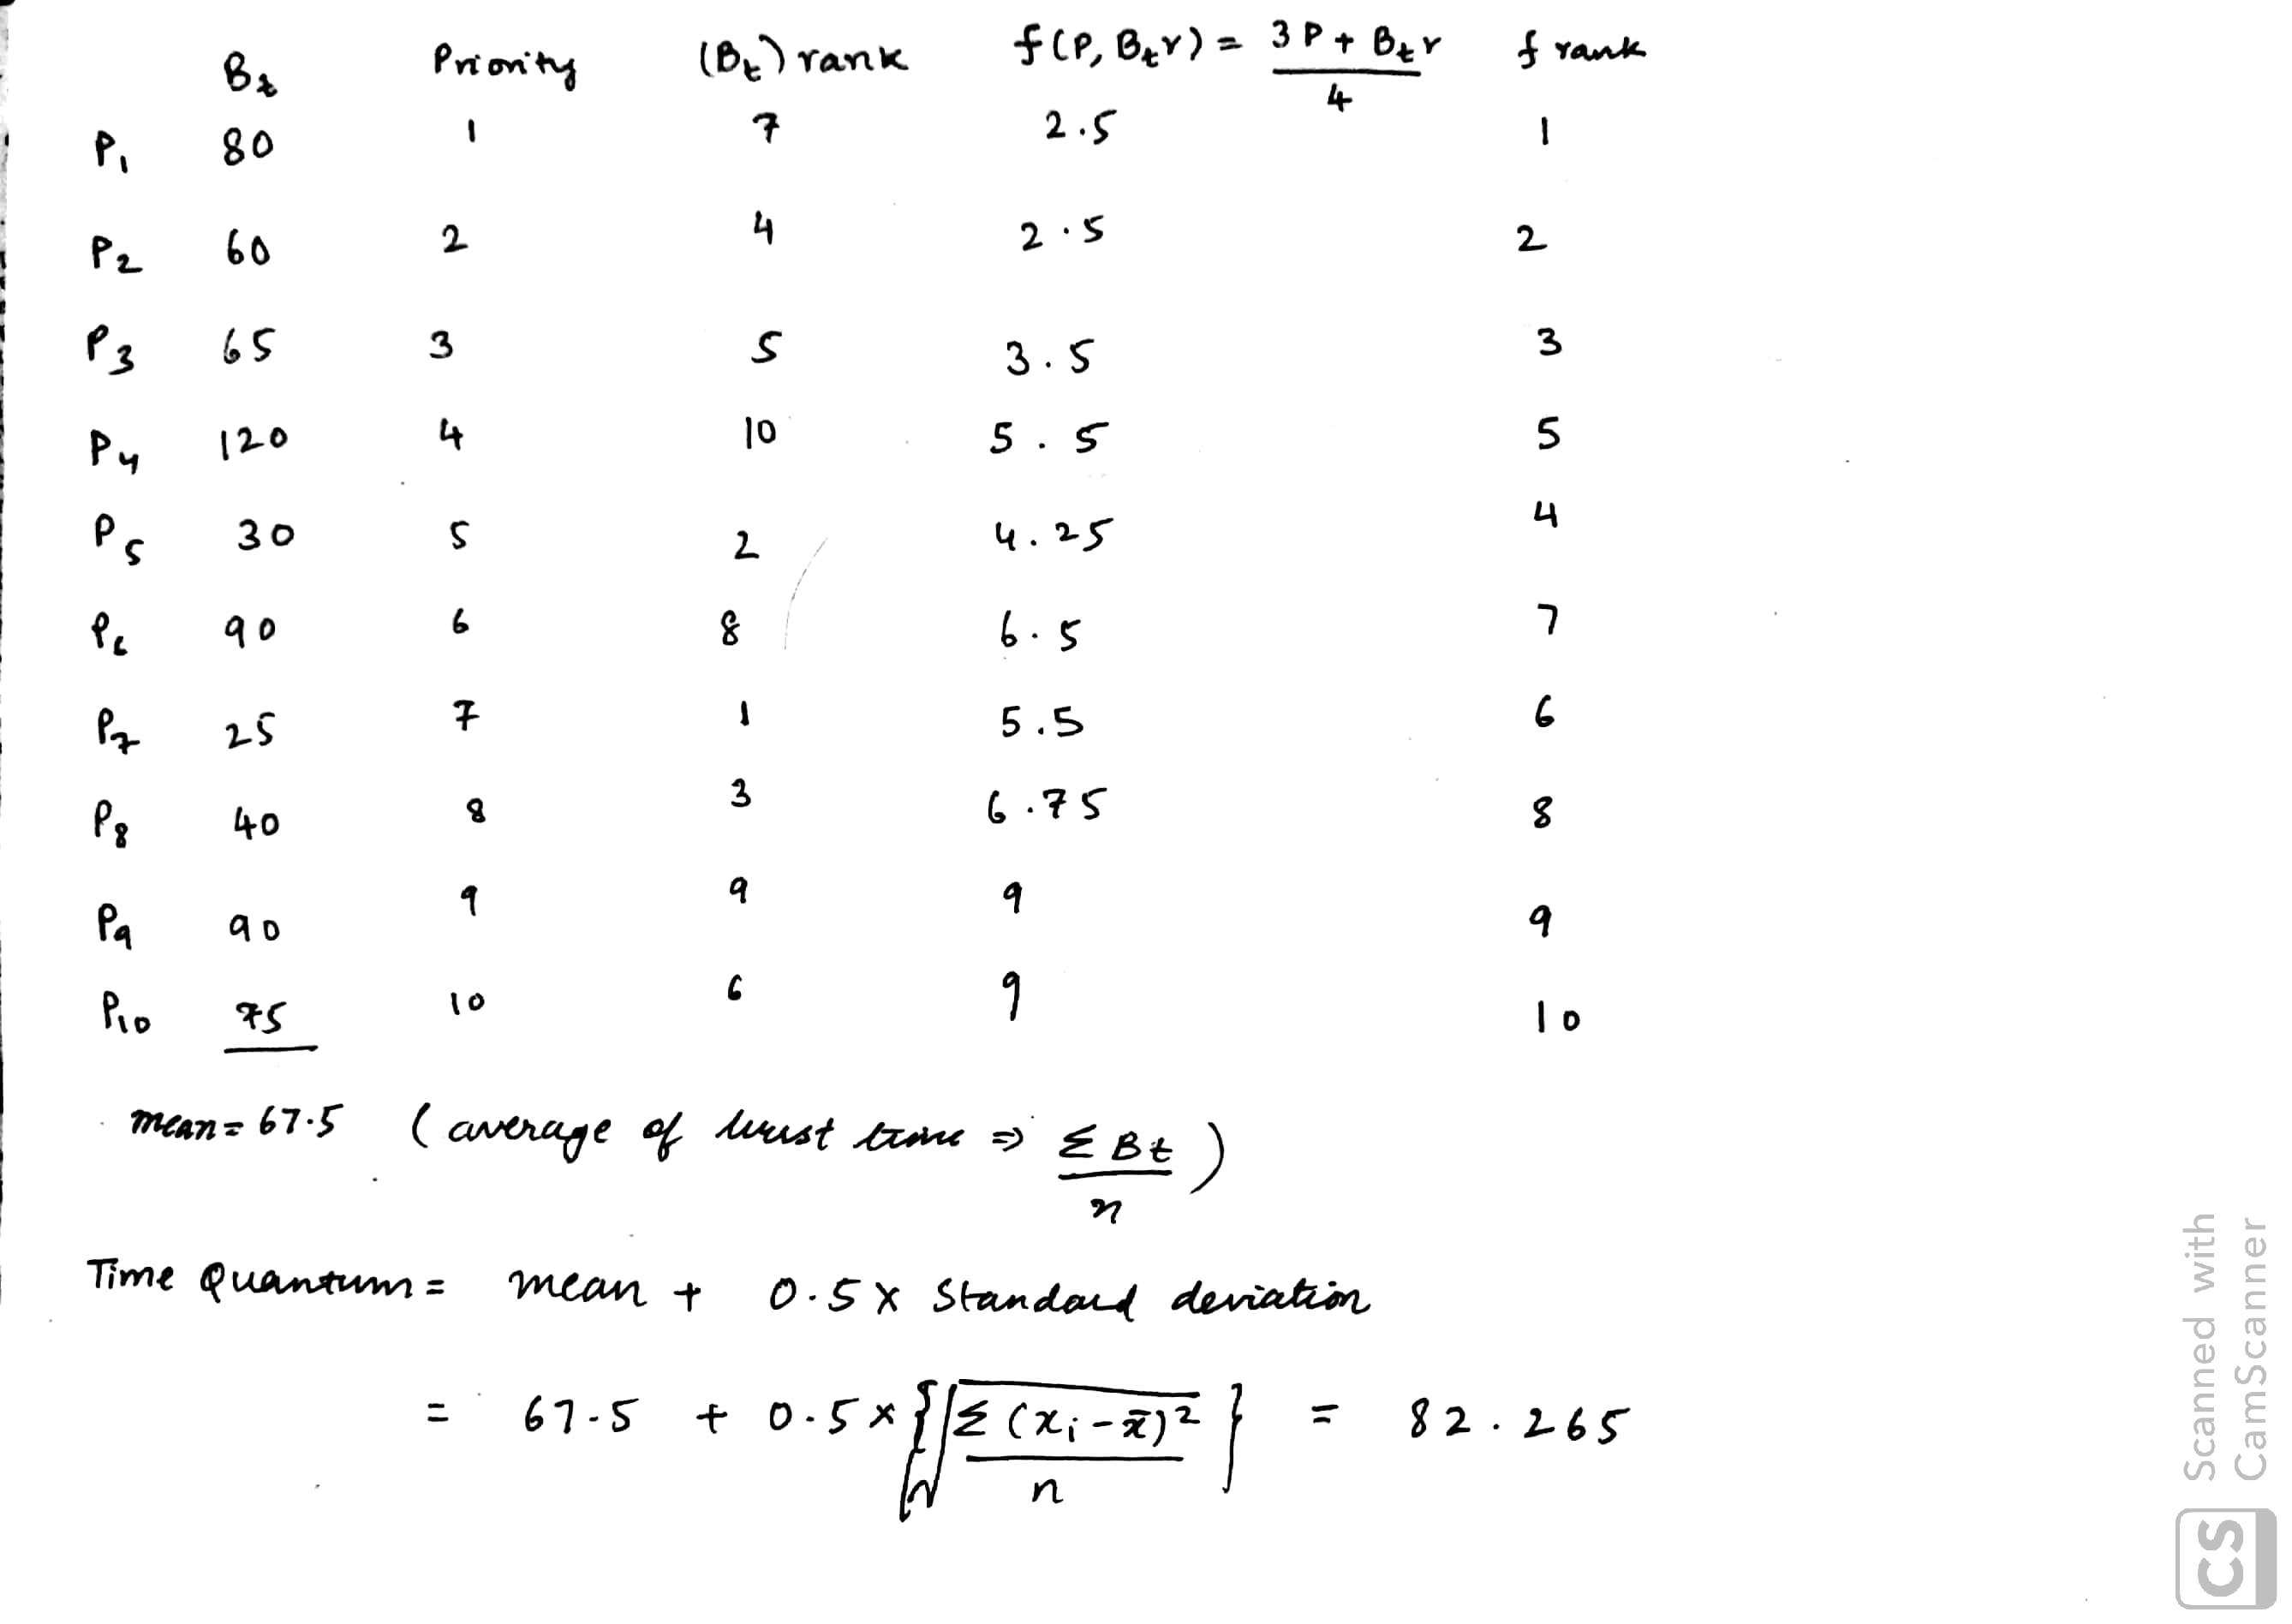 Bt Priority (Bt) rank f(P, Btr) = 3P + Btr / 4 f rank
P1 80 1 7 2.5 1
P2 60 2 4 2.5 2
P3 65 3 5 3.5 3
P4 120 4 10 5.5 5
P5 30 5 2 4.25 4
P6 90 6 8 6.5 7
P7 25 7 1 5.5 6
P8 40 8 3 6.75 8
P9 90 9 9 9 9
P10 75 10 6 9 10
mean = 67.5 (average of burst time ⇒ ΣBt / n)
Time Quantum = mean + 0.5 x Standard deviation
= 67.5 + 0.5 x {√(Σ(xi - x̄)² / n)} = 82.265
CS Scanned with
CamScanner